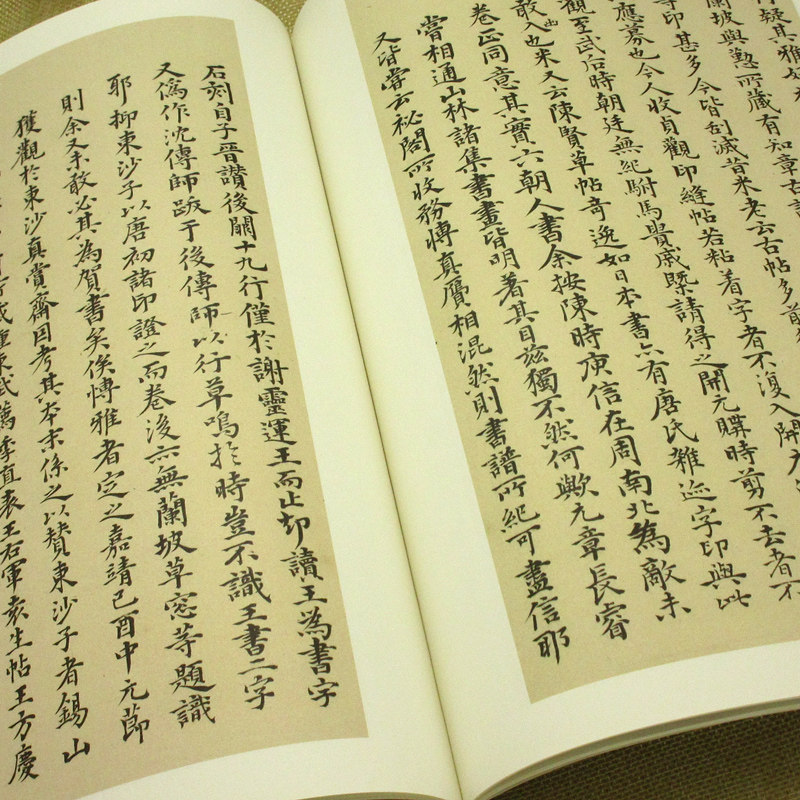 行疑其雅好
蘭坡與懃所藏有知章女
等印甚多今皆刮滅昔米老云古帖多前
應募也今人收貞觀印縫帖若粘着字者不復入開元
觀至武后時朝廷無紀駙馬貴戚槩請得之開元購時剪不去者不
敢入也米又云陳賢草帖奇逸如日本書亦有唐氏雜迹字印與此
卷正同意其實六朝人書余按陳時庾信在周南北為敵未
嘗相通山林諸集書畫皆明著其目茲獨不然何歟元章長睿
又皆嘗云祕閣所收務博真贗相混然則書譜所紀可盡信耶
石刻自子晉讚後闕十九行僅於謝靈運王而止却讀王為書字
又偽作沈傳師跋于後傳師以行草鳴於時豈不識王書二字
耶抑東沙子以唐初諸印證之而卷後亦無蘭坡草窓等題識
則余又未敢必其為賀書矣俟博雅者定之嘉靖己酉中元節
獲觀於東沙真賞齋因考其本末係之以贊東沙子者錫山
薦季直表王右軍袁生帖王方慶